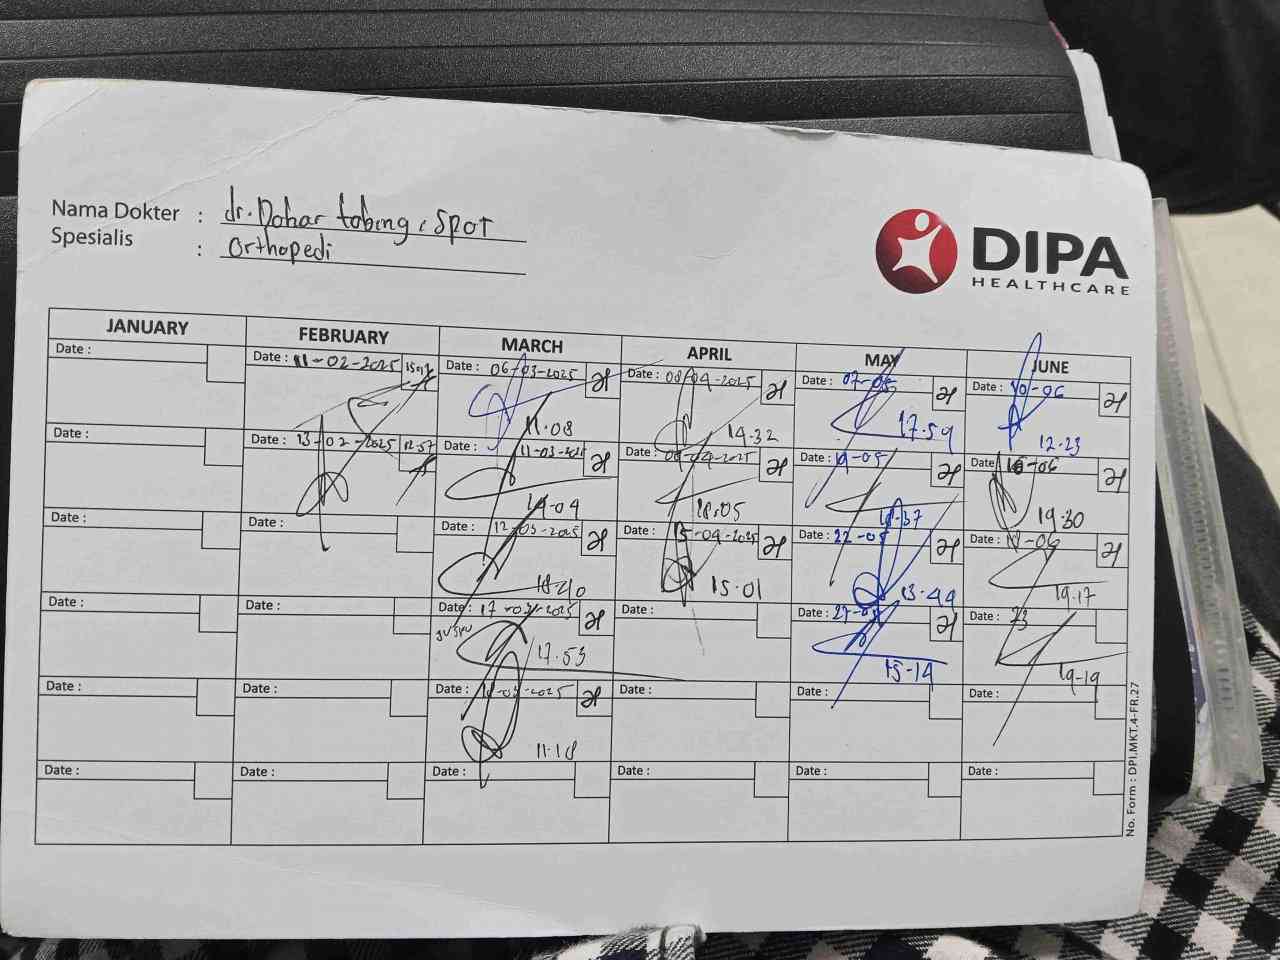 Nama Dokter : dr. Dohar tobing, SpOT
Spesialis : Orthopedi
DIPA
HEALTHCARE
JANUARY FEBRUARY MARCH APRIL MAY JUNE
Date : Date : 11-02-2025 Date : 06-03-2025 Date : 08-04-2025 Date : 07-05 Date : 10-06
11.08 14.32 17.59 12.23
Date : Date : 13-02-2025 12.57 Date : 11-03-2025 Date : Date : 19-05 Date : 16-06
19.04 18.05 18.37 19.30
Date : Date : Date : 12-03-2025 Date : 15-04-2025 Date : 22-05 Date :
15.01 13.44 19.17
Date : Date : Date : 17-03-2025 Date : Date : 27-05 Date : 23
17.53 15-14 19-19
Date : Date : Date : Date : Date : Date :
11.18
Date : Date : Date : Date : Date : Date :
No. Form : DPI.MKT.4-FR.27